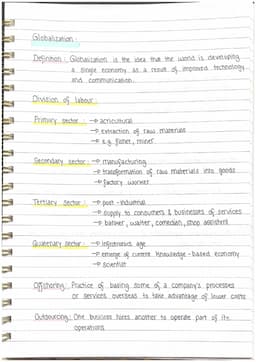 Globalization:
Definition: Globalization is the idea that the world is developing
a single economy as a result of improved technology
and communication.
Division of labour:
Primary sector: → agricultural
→ extraction of raw materials
→ e.g. fisher, miner
Secondary sector: → manufacturing
→ transformation of raw materials into goods
→ factory worker
Tertiary sector: → post-industrial
→ supply to consumers & businesses of services
→ banker, waiter, comedian, shop assistant
Quaternary sector: →
→ emerge of current knowledge-based economy
→ scientist
Offshoring: Practice of basing some of a company's processes
or services overseas to take advantage of lower costs
Outsourcing: One business hires another to operate part of its
operations